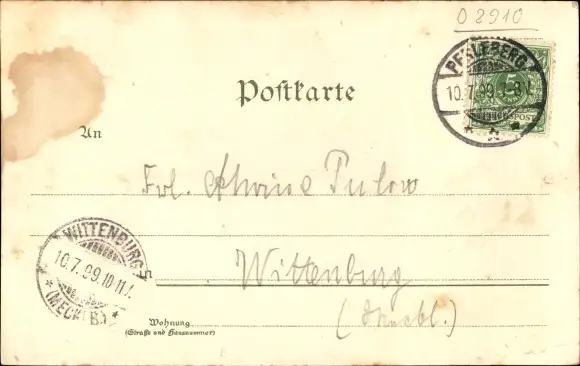 O 2910
PERLEBERG
10.7.99.7-8
5
REICHSPOST
Postkarte
An
Frl. Alwine Pulow
WITTENBURG
10.7.99.10-11
(MECKLB.)
Wittenburg
(Meckl.)
Wohnung
(Straße und Hausnummer)